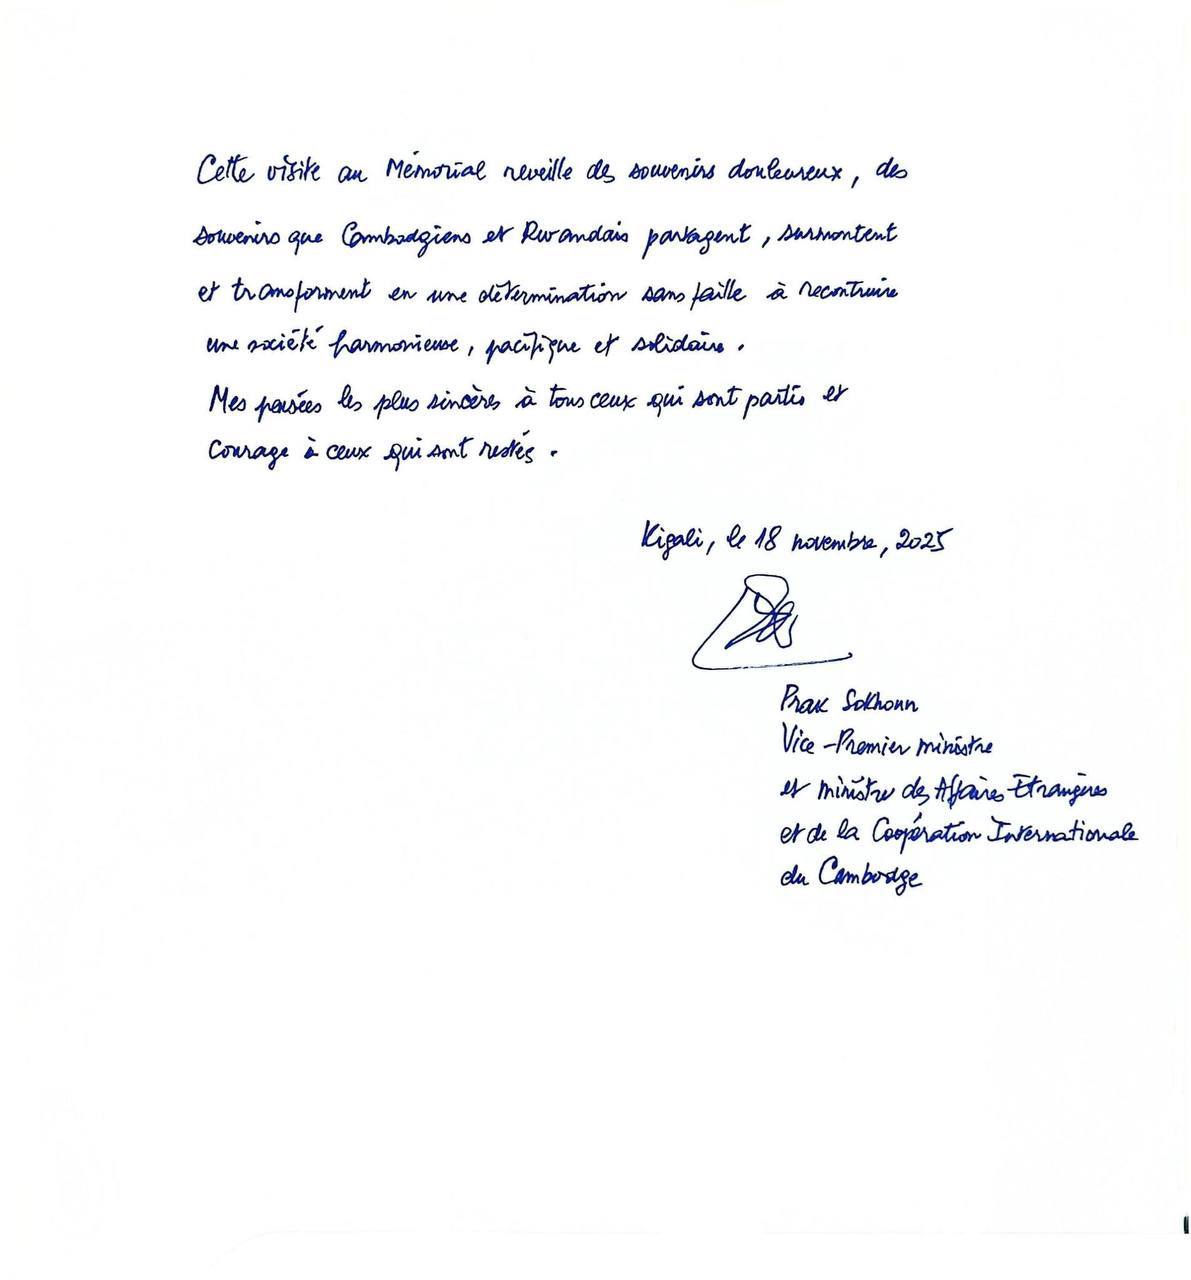 Cette visite au Mémorial reveille des souvenirs douleureux, des
souvenirs que Cambodgiens et Rwandais partagent, surmontent
et transforment en une détermination sans faille à recontruire
une société harmonieuse, pacifique et solidaire.
Mes pensées les plus sincères à tous ceux qui sont partis et
Courage à ceux qui sont restés.
Kigali, le 18 novembre, 2025
Prak Sokhonn
Vice-Premier ministre
et ministre des Affaires Etrangères
et de la Coopération Internationale
du Cambodge